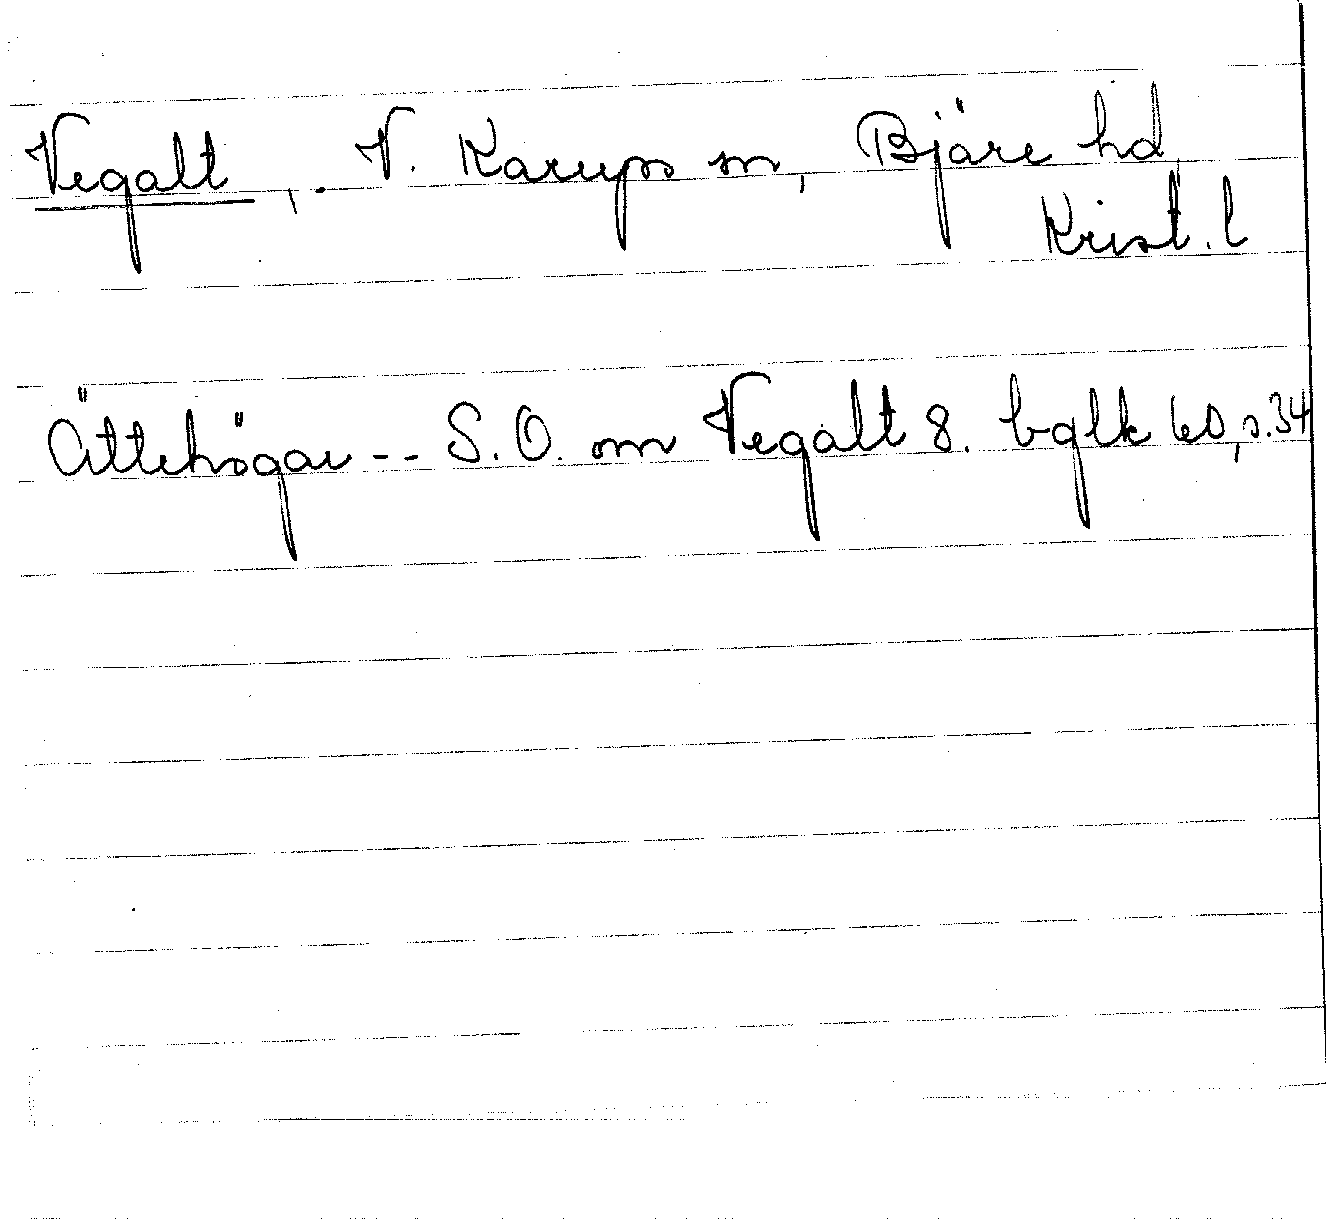 Vegalt, V. Karups sn, Bjäre hd
Krist. l
Ättehögar -- S.O. om Vegalt 8. bglk 60, s.34